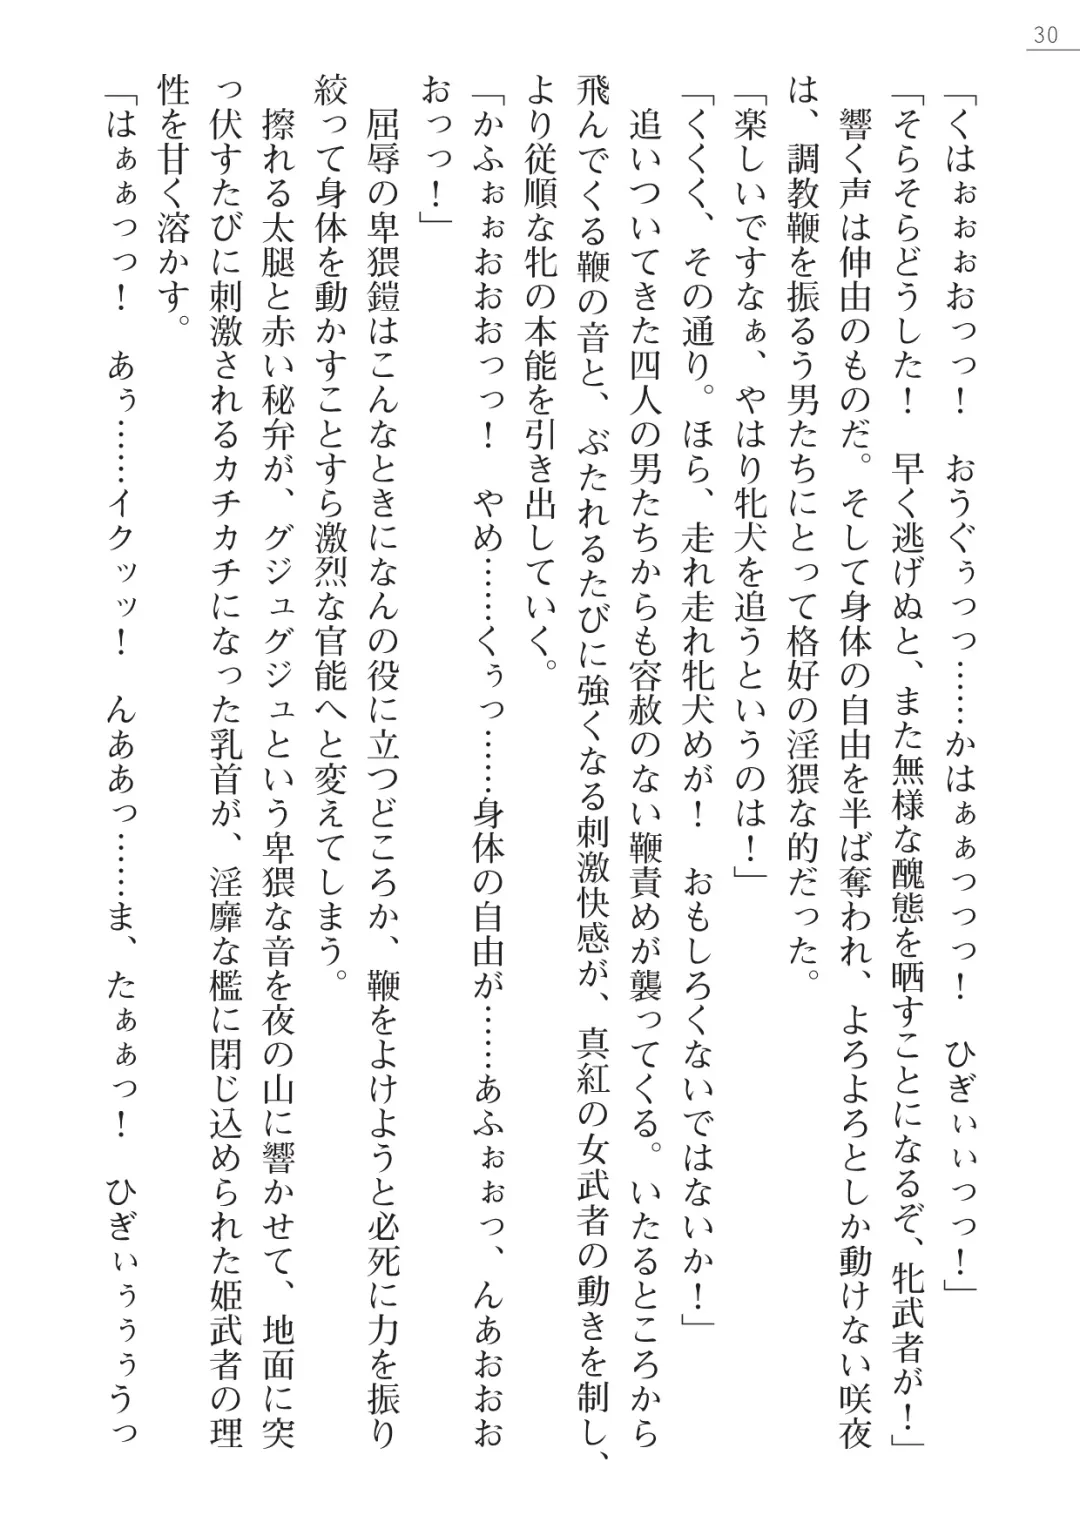 30
「くはぉぉぉおっっ！　おうぐぅっっ……かはぁぁっっっ！　ひぎぃぃっっ！」
「そらそらどうした！　早く逃げぬと、また無様な醜態を晒すことになるぞ、牝武者が！」
　響く声は伸由のものだ。そして身体の自由を半ば奪われ、よろよろとしか動けない咲夜
は、調教鞭を振るう男たちにとって格好の淫猥な的だった。
「楽しいですなぁ、やはり牝犬を追うというのは！」
「くくく、その通り。ほら、走れ走れ牝犬めが！　おもしろくないではないか！」
　追いついてきた四人の男たちからも容赦のない鞭責めが襲ってくる。いたるところから
飛んでくる鞭の音と、ぶたれるたびに強くなる刺激快感が、真紅の女武者の動きを制し、
より従順な牝の本能を引き出していく。
「かふぉぉおおおっっ！　やめ……くぅっ……身体の自由が……あふぉぉっ、んあおおお
おっっ！」
　屈辱の卑猥鎧はこんなときになんの役に立つどころか、鞭をよけようと必死に力を振り
絞って身体を動かすことすら激烈な官能へと変えてしまう。
　擦れる太腿と赤い秘弁が、グジュグジュという卑猥な音を夜の山に響かせて、地面に突
っ伏すたびに刺激されるカチカチになった乳首が、淫靡な檻に閉じ込められた姫武者の理
性を甘く溶かす。
「はぁぁっっ！　あぅ……イクッッ！　んああっ……ま、たぁぁっ！　ひぎぃぅぅぅうっ